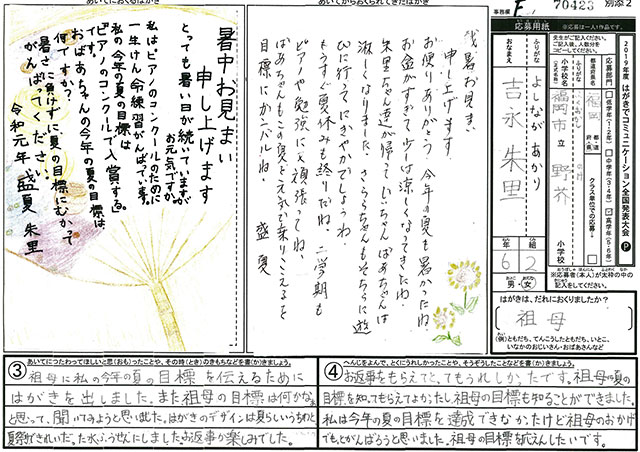 あいてにおくるはがき
暑中お見まい
申し上げます
とっても暑い日が続いていますが、
お元気ですか。
私は、ピアノのコンクールのために
一生けん命練習がんばっています。
私の今年の夏の目標は
『ピアノのコンクールで入賞する。』
です。
おばあちゃんの今年の夏の目標は、
何ですか？
暑さに負けずに夏の目標にむかって
がんばってください。
令和元年 盛夏 朱里
あいてからおくられてきたはがき
残暑お見まい
申し上げます
お便りありがとう 今年の夏も暑かったね
お盆がすぎて少しは涼しくなってきたね
朱里ちゃん達が帰っていちばんばあちゃんは
淋しくなりました さららちゃんもそちらに遊
びに行ってにぎやかでしょうね
もうすぐ夏休みも終りだね、二学期も
ピアノや勉強に頑張ってね。
ばあちゃんもこの夏を元気で乗りこえるを
目標にがんばるね。
盛夏
事務欄
70423
別添2
応募用紙
※応募は一人1作品です。
2019年度 はがきでコミュニケーション全国発表大会
応募部門
低学年(1・2年)
中学年(3・4年)
高学年(5・6年)
クラス単位での応募
都道府県名
福岡
小学校名
福岡市立 野芥 小学校
ふりがな
よしなが あかり
おなまえ
吉永 朱里
年 組
6 2
男・女
※応募者(本人)が太枠の中の
記入をしてください。
はがきは、だれにおくりましたか？
祖母
(例)ともだち、てんこうしたともだち、いとこ、
いなかのおじいさん・おばあさんなど
③ あいてにつたわってほしいと思(おも)ったことや、その時(とき)のきもちなどを書(か)きましょう。
祖母に私の今年の夏の目標を伝えるために
はがきを出しました。また祖母の目標は何かな
と思って、聞いてみようと思いました。はがきのデザインは夏らしいうちわと
夏祭できれいだった水ふうせんにしました。お返事が楽しみでした。
④ へんじをよんで、とくにうれしかったことや、そうぞうしたことなどを書(か)きましょう。
お返事をもらえてとってもうれしかったです。祖母の夏の
目標を知ってもらえてよかったし、祖母の目標も知ることができました。
私は今年の夏の目標を達成できなかったけど祖母のおかげ
でもっとがんばろうと思いました。祖母の目標を応えんしたいです。